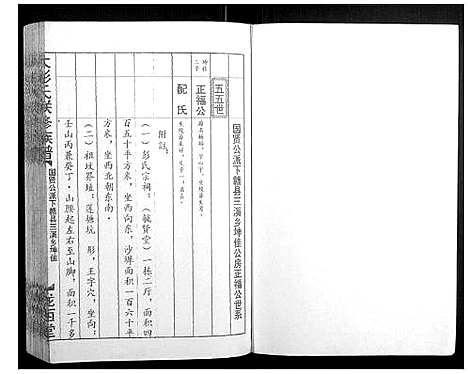 国贤公派下赣县三溪乡坤佳公房正福公世系
五五世
坤佳
二子
正福公
配氏
附註：
（一）彭氏宗祠：（毓贤堂）一栋二厅，面积一
百五十平方米，坐西向东，沙墠面积一百六十平
方米，坐西北朝东南。
（二）祖坟界址：莲塘坑 形，王字穴，坐向：
壬山丙兼癸丁。山腰起左右田至山脚，面积一千多
大彭氏联修族谱
国贤公派下赣县三溪乡坤佳